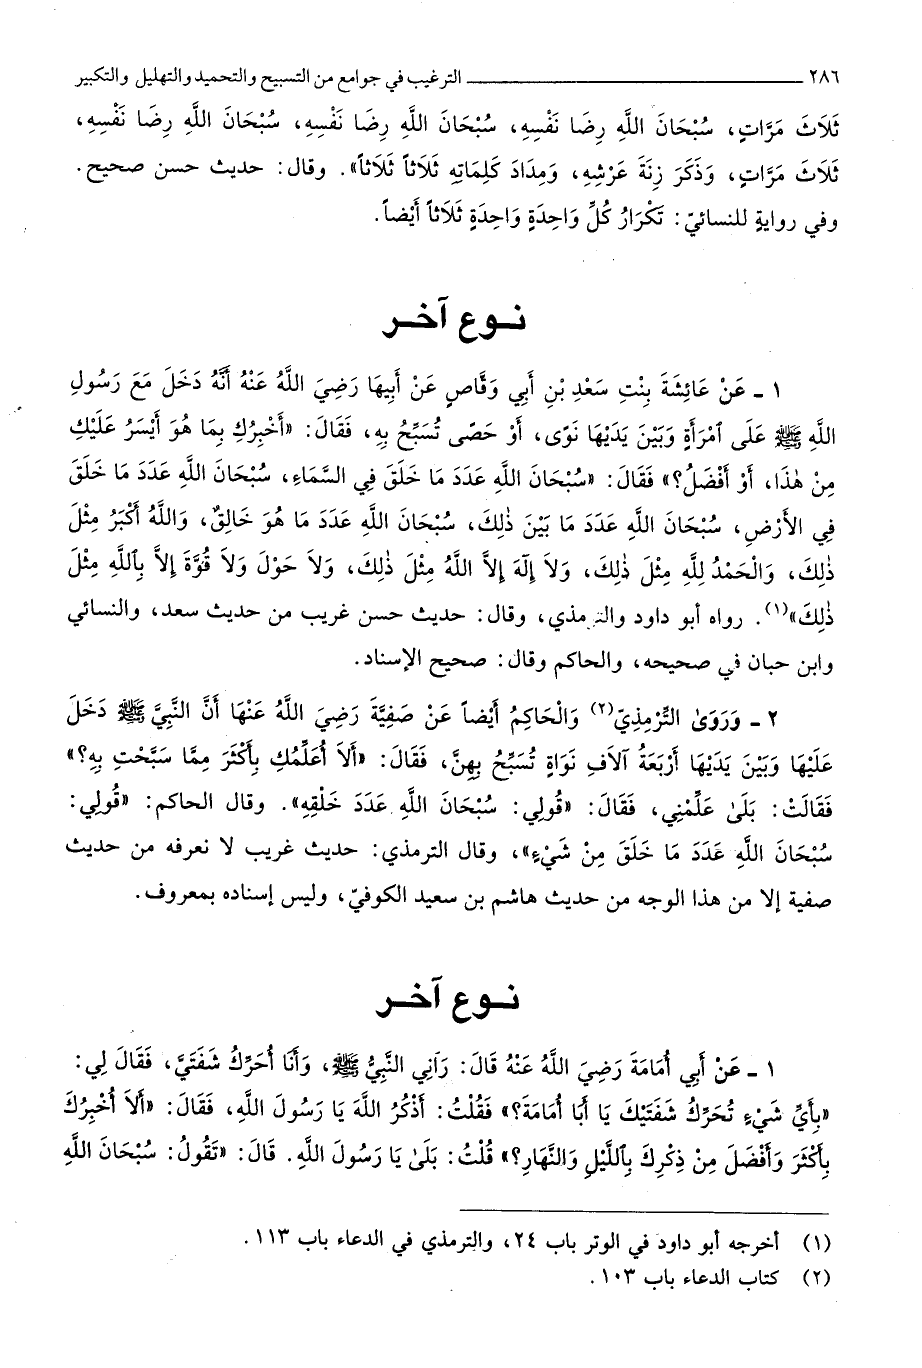 ٢٨٦ ــــــــــــــــــــ الترغيب في جوامع من التسبيح والتحميد والتهليل والتكبير
ثَلَاثَ مَرَّاتٍ، سُبْحَانَ اللَّهِ رِضَا نَفْسِهِ، سُبْحَانَ اللَّهِ رِضَا نَفْسِهِ، سُبْحَانَ اللَّهِ رِضَا نَفْسِهِ،
ثَلَاثَ مَرَّاتٍ، وَذَكَرَ زِنَةَ عَرْشِهِ، وَمِدَادَ كَلِمَاتِهِ ثَلَاثاً ثَلَاثاً». وقال: حديث حسن صحيح.
وفي روايةٍ للنسائيّ: تَكْرَارُ كُلِّ وَاحِدَةٍ وَاحِدَةٍ ثَلَاثاً أَيْضاً.
نـوع آخـر
١ ـ عَنْ عَائِشَةَ بِنْتِ سَعْدِ بْنِ أَبِي وَقَّاصٍ عَنْ أَبِيهَا رَضِيَ اللَّهُ عَنْهُ أَنَّهُ دَخَلَ مَعَ رَسُولِ
اللَّهِ ﷺ عَلَى ٱمْرَأَةٍ وَبَيْنَ يَدَيْهَا نَوًى، أَوْ حَصًى تُسَبِّحُ بِهِ، فَقَالَ: «أُخْبِرُكِ بِمَا هُوَ أَيْسَرُ عَلَيْكِ
مِنْ هٰذَا، أَوْ أَفْضَلُ؟» فَقَالَ: «سُبْحَانَ اللَّهِ عَدَدَ مَا خَلَقَ فِي السَّمَاءِ، سُبْحَانَ اللَّهِ عَدَدَ مَا خَلَقَ
فِي الأَرْضِ، سُبْحَانَ اللَّهِ عَدَدَ مَا بَيْنَ ذٰلِكَ، سُبْحَانَ اللَّهِ عَدَدَ مَا هُوَ خَالِقٌ، وَاللَّهُ أَكْبَرُ مِثْلَ
ذٰلِكَ، وَالْحَمْدُ لِلَّهِ مِثْلَ ذٰلِكَ، وَلاَ إِلَهَ إِلاَّ اللَّهُ مِثْلَ ذٰلِكَ، وَلاَ حَوْلَ وَلاَ قُوَّةَ إِلاَّ بِٱللَّهِ مِثْلَ
ذٰلِكَ»(١). رواه أبو داود والترمذي، وقال: حديث حسن غريب من حديث سعد، والنسائي
وابن حبان في صحيحه، والحاكم وقال: صحيح الإسناد.
٢ ـ وَرَوَىٰ التِّرْمِذِيّ(٢) وَالْحَاكِمُ أَيْضاً عَنْ صَفِيَّةَ رَضِيَ اللَّهُ عَنْهَا أَنَّ النَّبِيَّ ﷺ دَخَلَ
عَلَيْهَا وَبَيْنَ يَدَيْهَا أَرْبَعَةُ آلاَفِ نَوَاةٍ تُسَبِّحُ بِهِنَّ، فَقَالَ: «أَلاَ أُعَلِّمُكِ بِأَكْثَرَ مِمَّا سَبَّحْتِ بِهِ؟»
فَقَالَتْ: بَلَىٰ عَلِّمْنِي، فَقَالَ: «قُولِي: سُبْحَانَ اللَّهِ عَدَدَ خَلْقِهِ». وقال الحاكم: «قُولِي:
سُبْحَانَ اللَّهِ عَدَدَ مَا خَلَقَ مِنْ شَيْءٍ»، وقال الترمذي: حديث غريب لا نعرفه من حديث
صفية إلا من هذا الوجه من حديث هاشم بن سعيد الكوفيّ، وليس إسناده بمعروف.
نـوع آخـر
١ ـ عَنْ أَبِي أُمَامَةَ رَضِيَ اللَّهُ عَنْهُ قَالَ: رَآنِي النَّبِيُّ ﷺ، وَأَنَا أُحَرِّكُ شَفَتَيَّ، فَقَالَ لِي:
«بِأَيِّ شَيْءٍ تُحَرِّكُ شَفَتَيْكَ يَا أَبَا أُمَامَةَ؟» فَقُلْتُ: أَذْكُرُ اللَّهَ يَا رَسُولَ اللَّهِ، فَقَالَ: «أَلاَ أُخْبِرُكَ
بِأَكْثَرَ وَأَفْضَلَ مِنْ ذِكْرِكَ بِٱللَّيْلِ وَالنَّهَارِ؟» قُلْتُ: بَلَىٰ يَا رَسُولَ اللَّهِ. قَالَ: «تَقُولُ: سُبْحَانَ اللَّهِ
(١) أخرجه أبو داود في الوتر باب ٢٤، والترمذي في الدعاء باب ١١٣.
(٢) كتاب الدعاء باب ١٠٣.